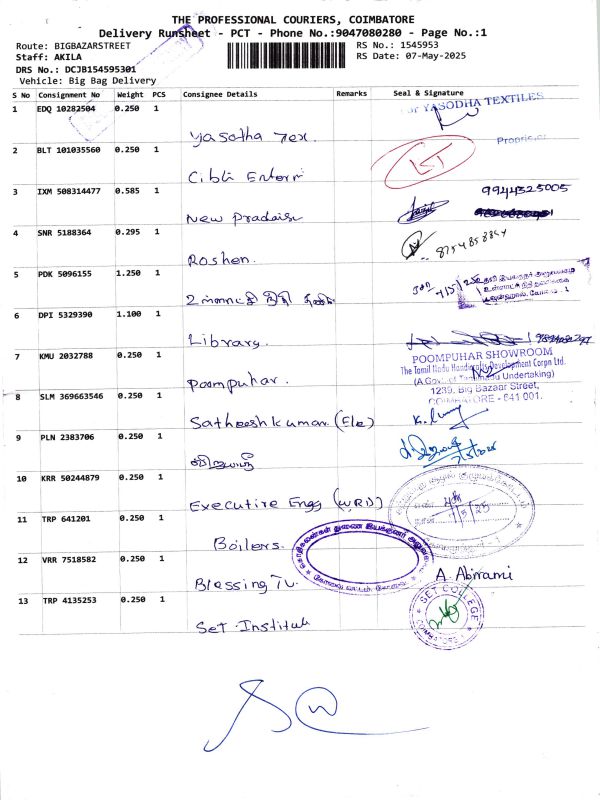 THE PROFESSIONAL COURIERS, COIMBATORE
Delivery RunSheet - PCT - Phone No.:9047080280 - Page No.:1
Route: BIGBAZARSTREET RS No.: 1545953
Staff: AKILA RS Date: 07-May-2025
DRS No.: DCJB154595301
Vehicle: Big Bag Delivery
S No Consignment No Weight PCS Consignee Details Remarks Seal & Signature
1 EDQ 10282504 0.250 1 Yasotha Tex. For YASODHA TEXTILES
Proprietor
2 BLT 101035560 0.250 1 Cibti Enterr
3 IXM 508314477 0.585 1 New Pradaise 9944325005
4 SNR 5188364 0.295 1 Roshen.
5 PDK 5096155 1.250 1
6 DPI 5329390 1.100 1 Library.
7 KMU 2032788 0.250 1 Poompuhar. POOMPUHAR SHOWROOM
The Tamil Nadu Handicrafts Development Corpn Ltd.
(A Govt. of Tamilnadu Undertaking)
1239, Big Bazaar Street,
COIMBATORE - 641 001.
8 SLM 369663546 0.250 1 Satheesh kumar (Ele)
9 PLN 2383706 0.250 1
10 KRR 50244879 0.250 1 Executive Engg (WRD)
11 TRP 641201 0.250 1 Boilers.
12 VRR 7518582 0.250 1 Blessing Tv. A. Abirami
13 TRP 4135253 0.250 1 Set Institute SET COLLEGE